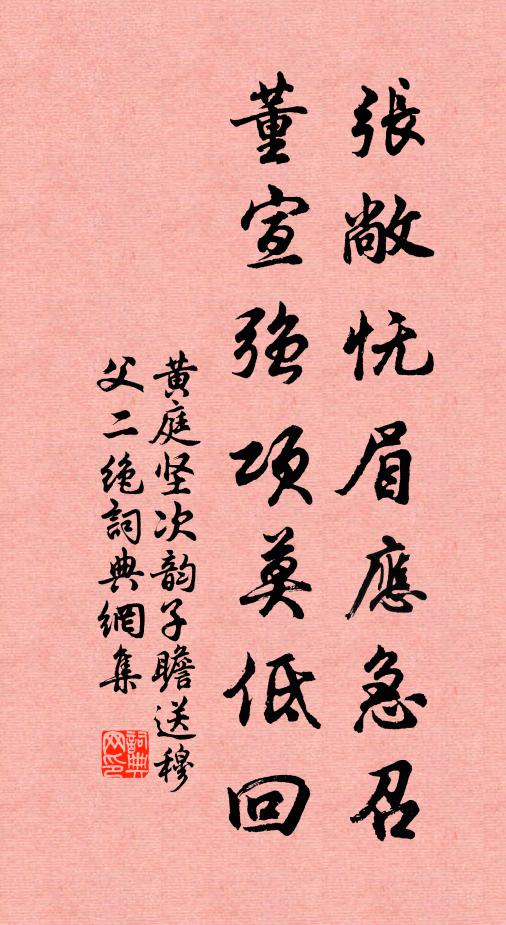 張敞怃眉應急召
董宣強項莫低回
黃庭坚次韵子瞻送穆
父二绝詞典網集
詞典网印